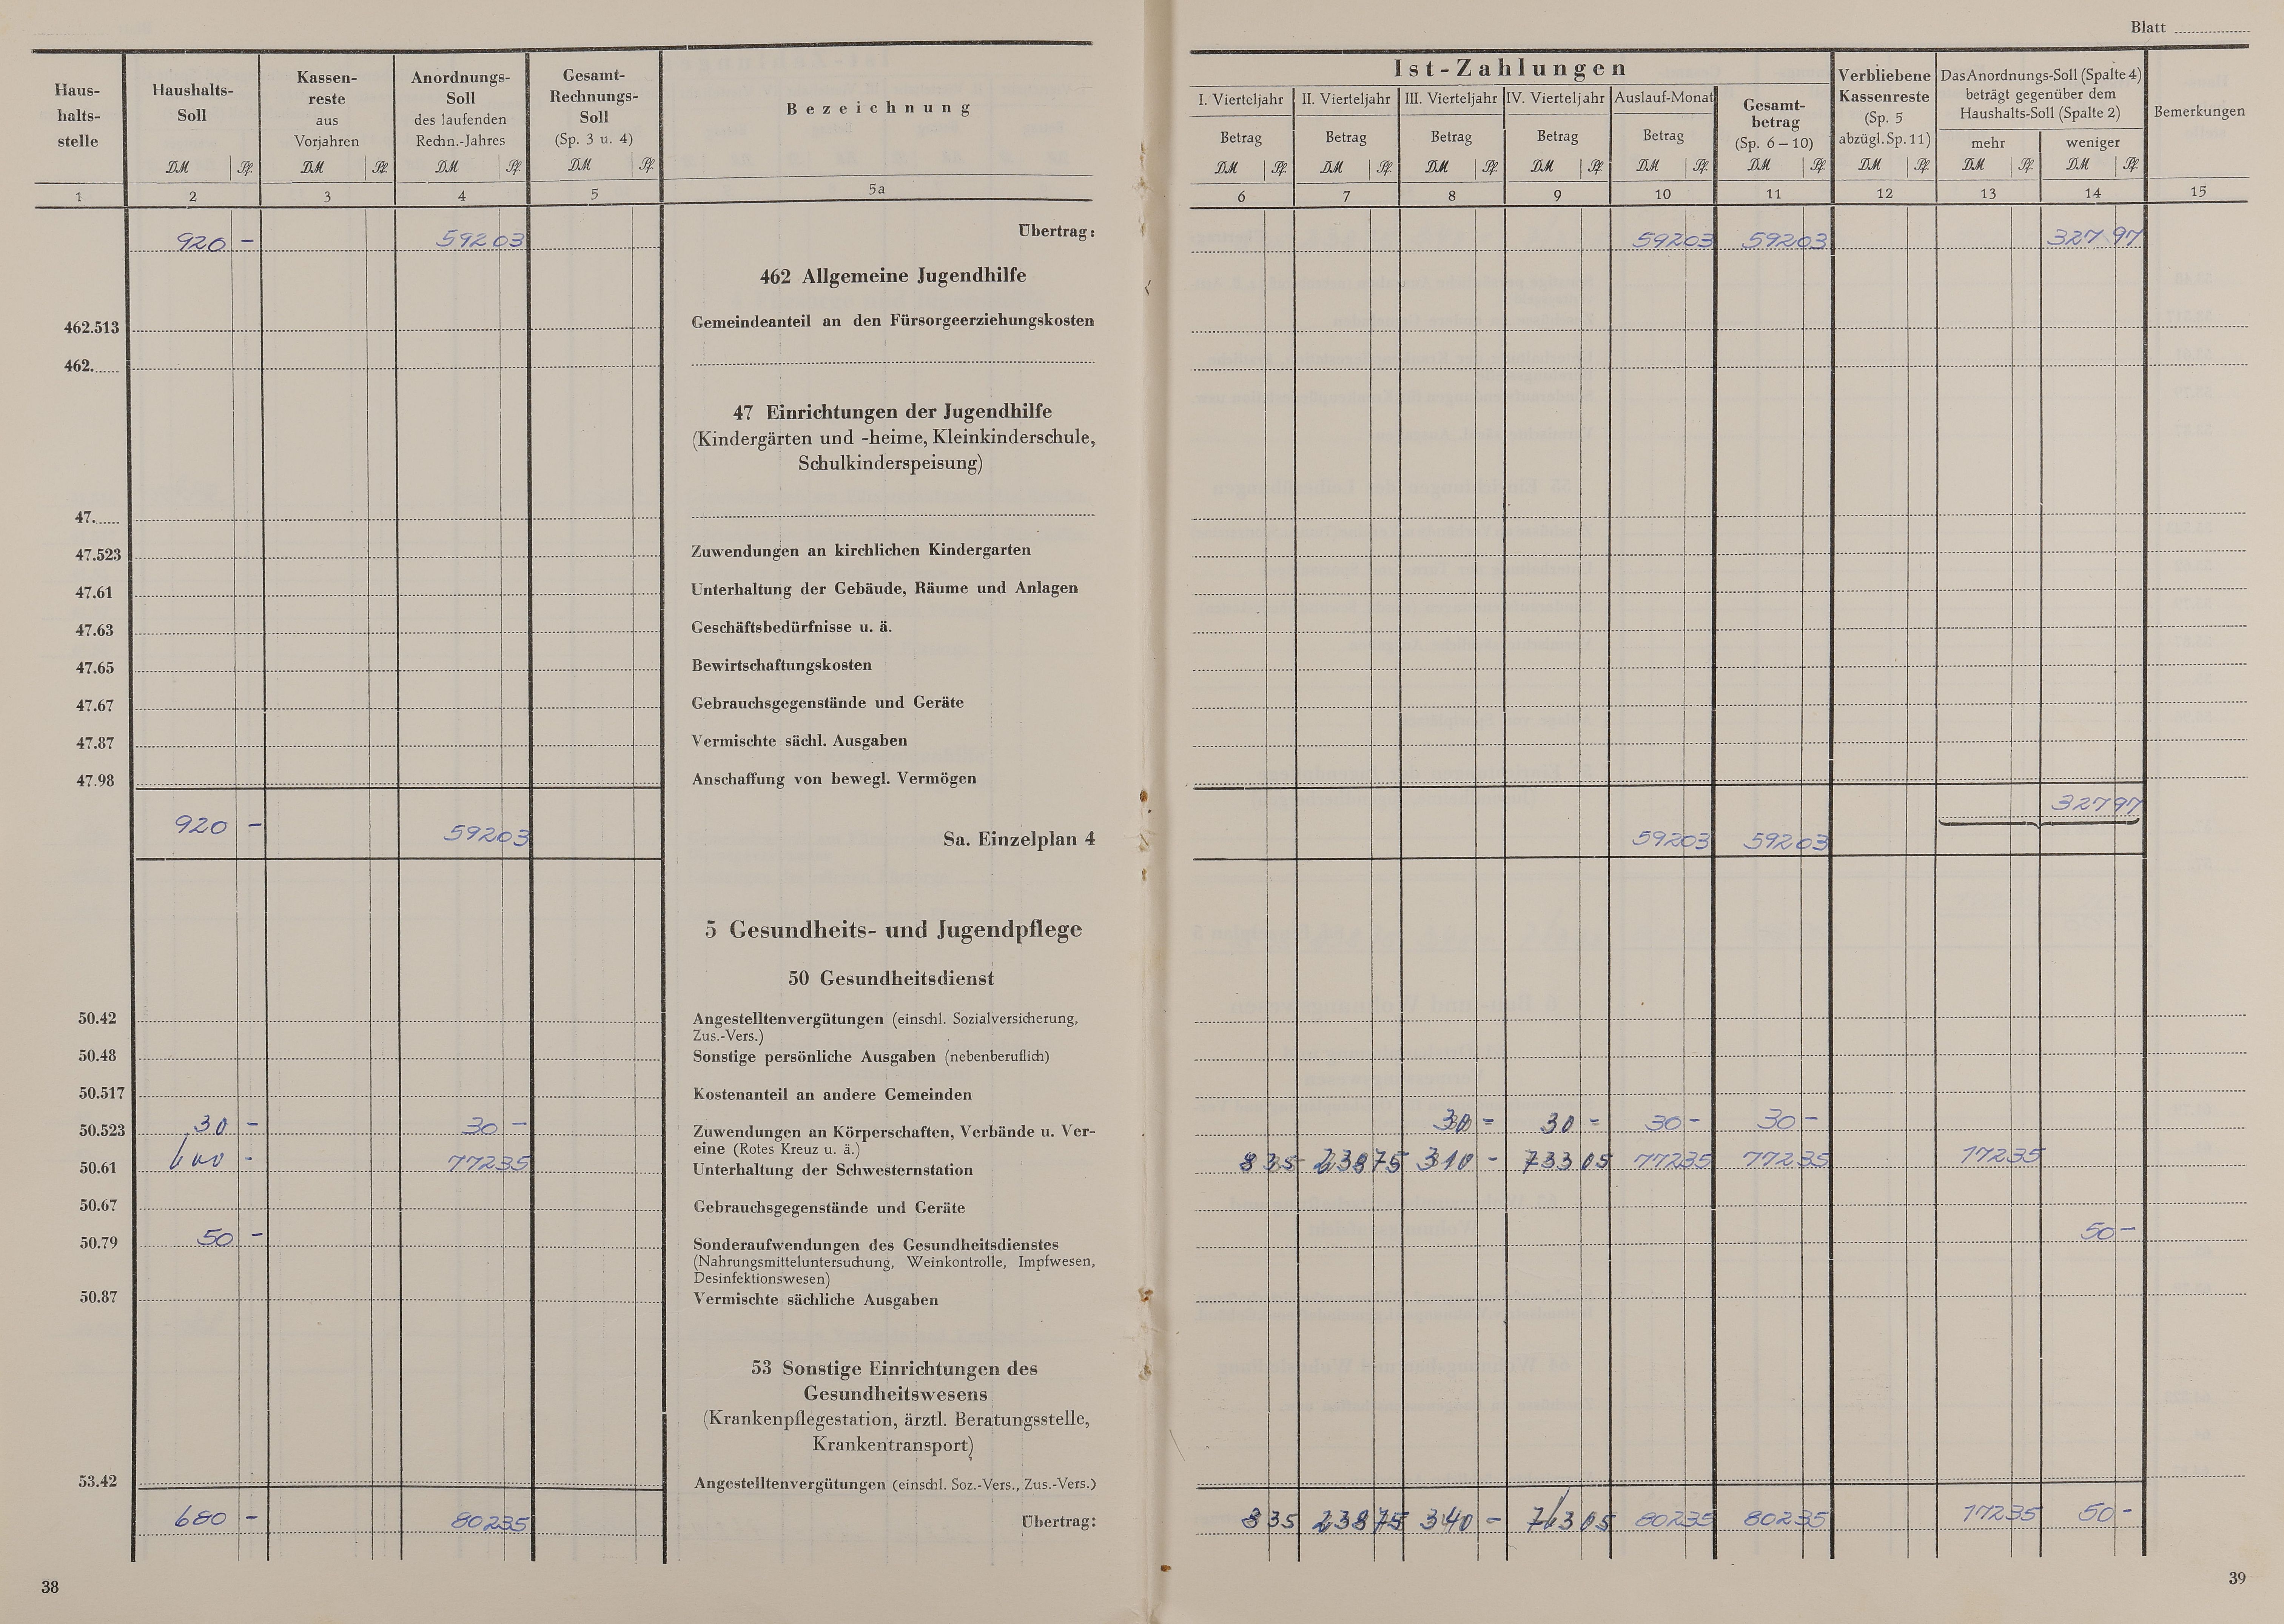 Blatt
Haus-
halts-
stelle
Haushalts-
Soll
Kassen-
reste
aus
Vorjahren
Anordnungs-
Soll
des laufenden
Rechn.-Jahres
Gesamt-
Rechnungs-
Soll
(Sp. 3 u. 4)
Bezeichnung
DM Pf. DM Pf. DM Pf. DM Pf.
1 2 3 4 5 5a
920 - 592 03 Übertrag:
462 Allgemeine Jugendhilfe
462.513 Gemeindeanteil an den Fürsorgeerziehungskosten
462.
47 Einrichtungen der Jugendhilfe
(Kindergärten und -heime, Kleinkinderschule,
Schulkinderspeisung)
47.
47.523 Zuwendungen an kirchlichen Kindergarten
47.61 Unterhaltung der Gebäude, Räume und Anlagen
47.63 Geschäftsbedürfnisse u. ä.
47.65 Bewirtschaftungskosten
47.67 Gebrauchsgegenstände und Geräte
47.87 Vermischte sächl. Ausgaben
47.98 Anschaffung von bewegl. Vermögen
920 - 592 03 Sa. Einzelplan 4
5 Gesundheits- und Jugendpflege
50 Gesundheitsdienst
50.42 Angestelltenvergütungen (einschl. Sozialversicherung,
Zus.-Vers.)
50.48 Sonstige persönliche Ausgaben (nebenberuflich)
50.517 Kostenanteil an andere Gemeinden
50.523 30 - 30 - Zuwendungen an Körperschaften, Verbände u. Ver-
eine (Rotes Kreuz u. ä.)
50.61 600 - 772 35 Unterhaltung der Schwesternstation
50.67 Gebrauchsgegenstände und Geräte
50.79 50 - Sonderaufwendungen des Gesundheitsdienstes
(Nahrungsmitteluntersuchung, Weinkontrolle, Impfwesen,
Desinfektionswesen)
50.87 Vermischte sächliche Ausgaben
53 Sonstige Einrichtungen des
Gesundheitswesens
(Krankenpflegestation, ärztl. Beratungsstelle,
Krankentransport)
53.42 Angestelltenvergütungen (einschl. Soz.-Vers., Zus.-Vers.)
680 - 802 35 Übertrag:
38
Ist-Zahlungen
I. Vierteljahr II. Vierteljahr III. Vierteljahr IV. Vierteljahr Auslauf-Monat
Betrag Betrag Betrag Betrag Betrag
Gesamt-
betrag
(Sp. 6–10)
Verbliebene
Kassenreste
(Sp. 5
abzügl. Sp. 11)
Das Anordnungs-Soll (Spalte 4)
beträgt gegenüber dem
Haushalts-Soll (Spalte 2)
mehr weniger
Bemerkungen
DM Pf. DM Pf. DM Pf. DM Pf. DM Pf. DM Pf. DM Pf. DM Pf. DM Pf.
6 7 8 9 10 11 12 13 14 15
592 03 592 03 327 97
327 97
592 03 592 03
30 - 30 - 30 - 30 -
8 35 238 75 310 - 733 05 772 35 772 35 172 35
50 -
8 35 238 75 340 - 763 05 802 35 802 35 172 35 50 -
39